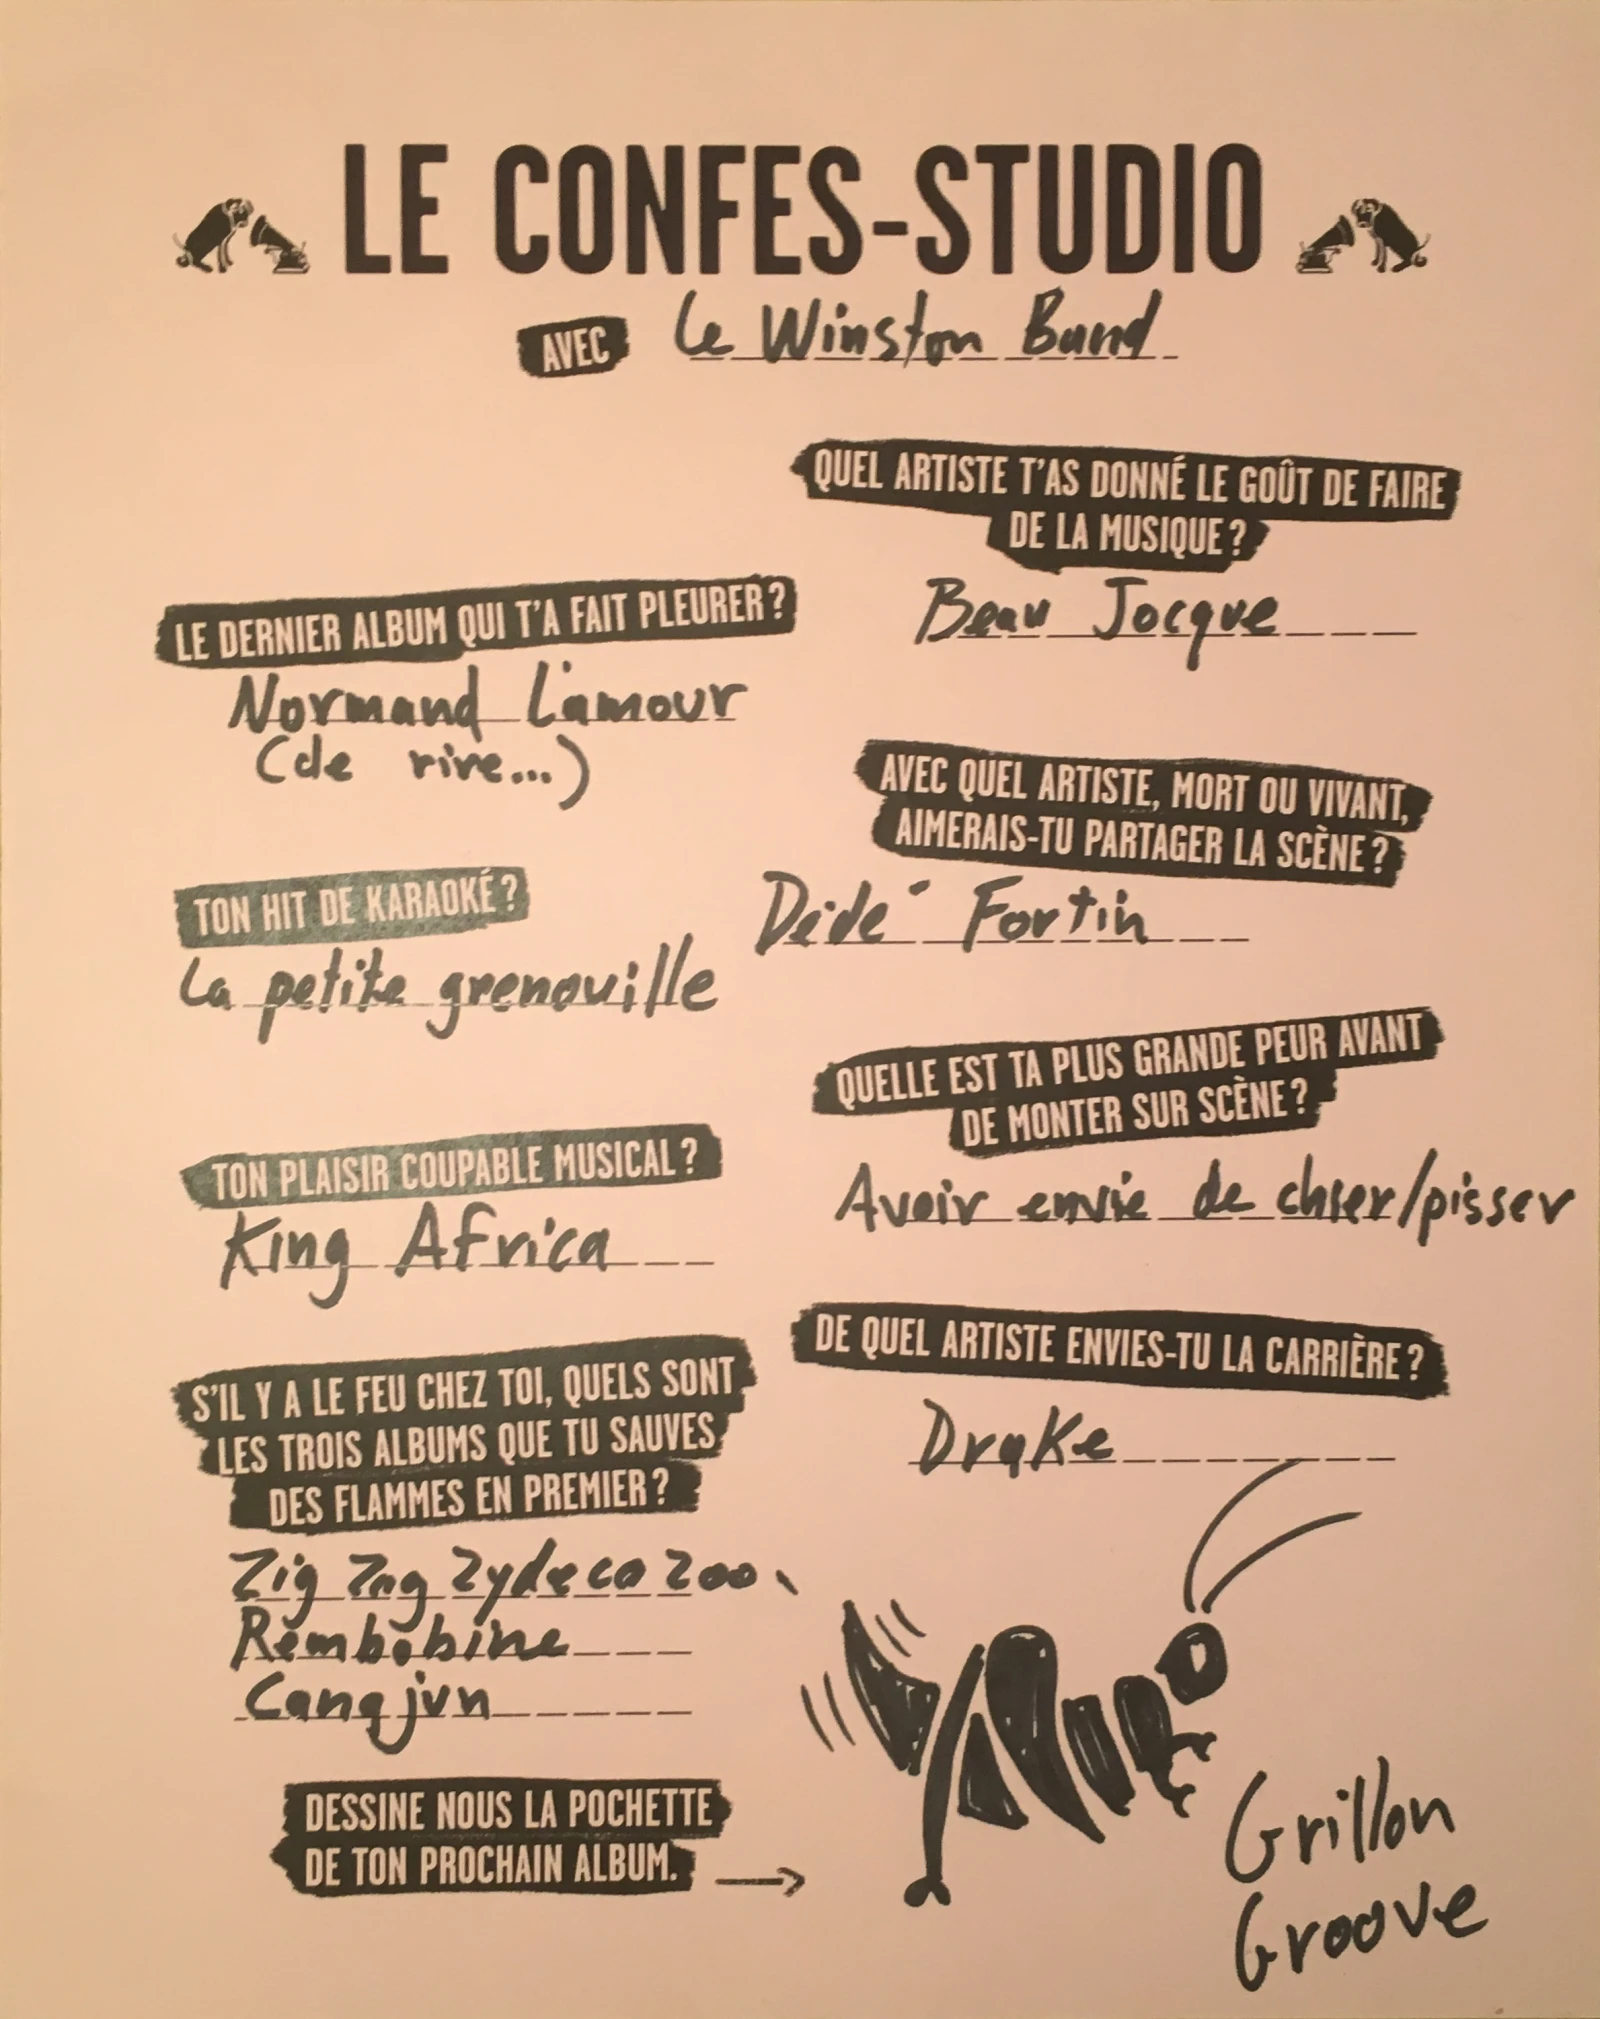 LE CONFES-STUDIO
AVEC Le Winston Band
LE DERNIER ALBUM QUI T'A FAIT PLEURER?
Normand L'amour
(de rire...)
TON HIT DE KARAOKÉ?
La petite grenouille
TON PLAISIR COUPABLE MUSICAL?
King Africa
S'IL Y A LE FEU CHEZ TOI, QUELS SONT
LES TROIS ALBUMS QUE TU SAUVES
DES FLAMMES EN PREMIER?
Zig Zag Zydeco Zoo,
Rembobine
Canajun
DESSINE NOUS LA POCHETTE
DE TON PROCHAIN ALBUM.
QUEL ARTISTE T'AS DONNÉ LE GOÛT DE FAIRE
DE LA MUSIQUE?
Beau Jocque
AVEC QUEL ARTISTE, MORT OU VIVANT,
AIMERAIS-TU PARTAGER LA SCÈNE?
Dédé Fortin
QUELLE EST TA PLUS GRANDE PEUR AVANT
DE MONTER SUR SCÈNE?
Avoir envie de chier/pisser
DE QUEL ARTISTE ENVIES-TU LA CARRIÈRE?
Drake
Grillon
Groove